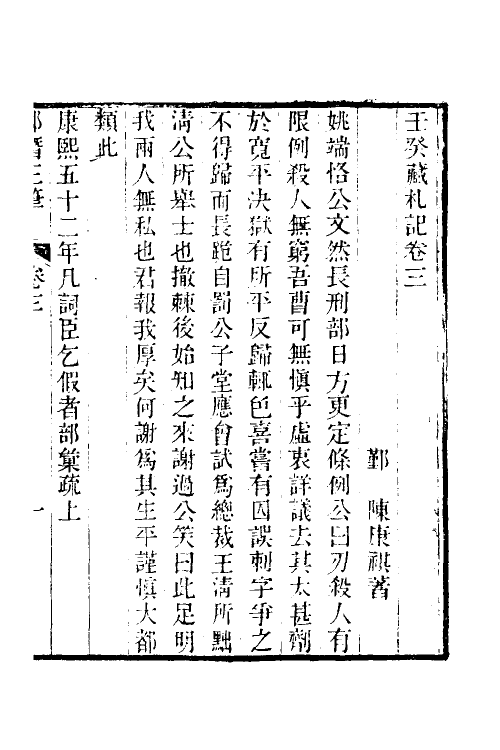 壬癸藏札記卷三
鄞　陳康祺著
姚端恪公文然長刑部日方更定條例公曰刃殺人有
限例殺人無窮吾曹可無慎乎虛衷詳議去其太甚劑
於寬平決獄有所平反歸輒色喜嘗有囚誤刺字爭之
不得歸而長跪自罰公子堂應會試爲總裁王淸所黜
淸公所舉士也撤棘後始知之來謝過公笑曰此足明
我兩人無私也君報我厚矣何謝爲其生平謹慎大都
類此
康熙五十二年凡詞臣乞假者部彙疏上
卷三
一